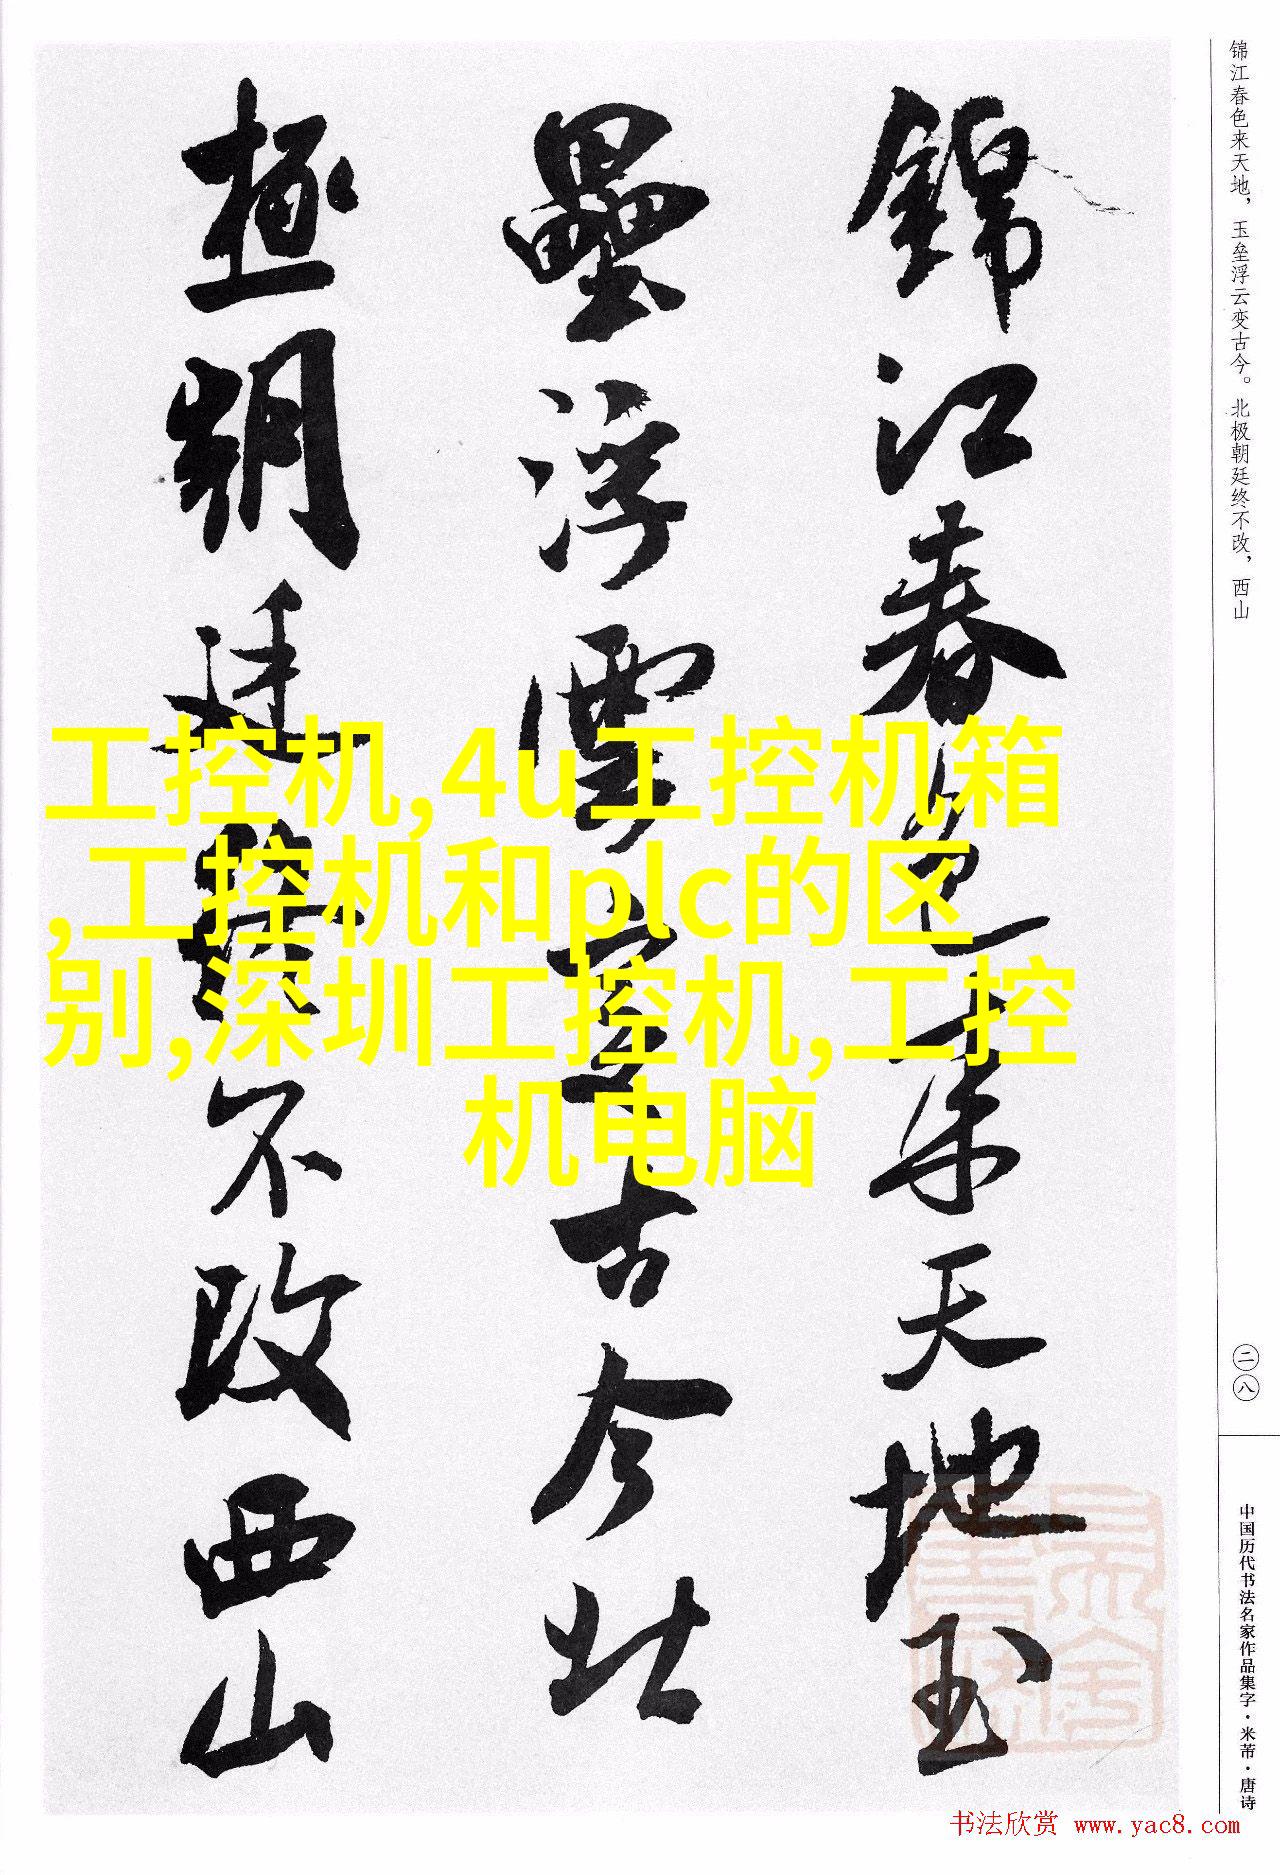 锦江春色来天地，玉垒浮云变古今。北极朝廷终不改，西山
錦江春色来天地玉
壘浮雲變古今北
極朝廷終不改西山
工控机,4u工控机箱
,工控机和plc的区
别,深圳工控机,工控
机电脑
二八
中国历代书法名家作品集字·米芾·唐诗
书法欣赏 www.yac8.com